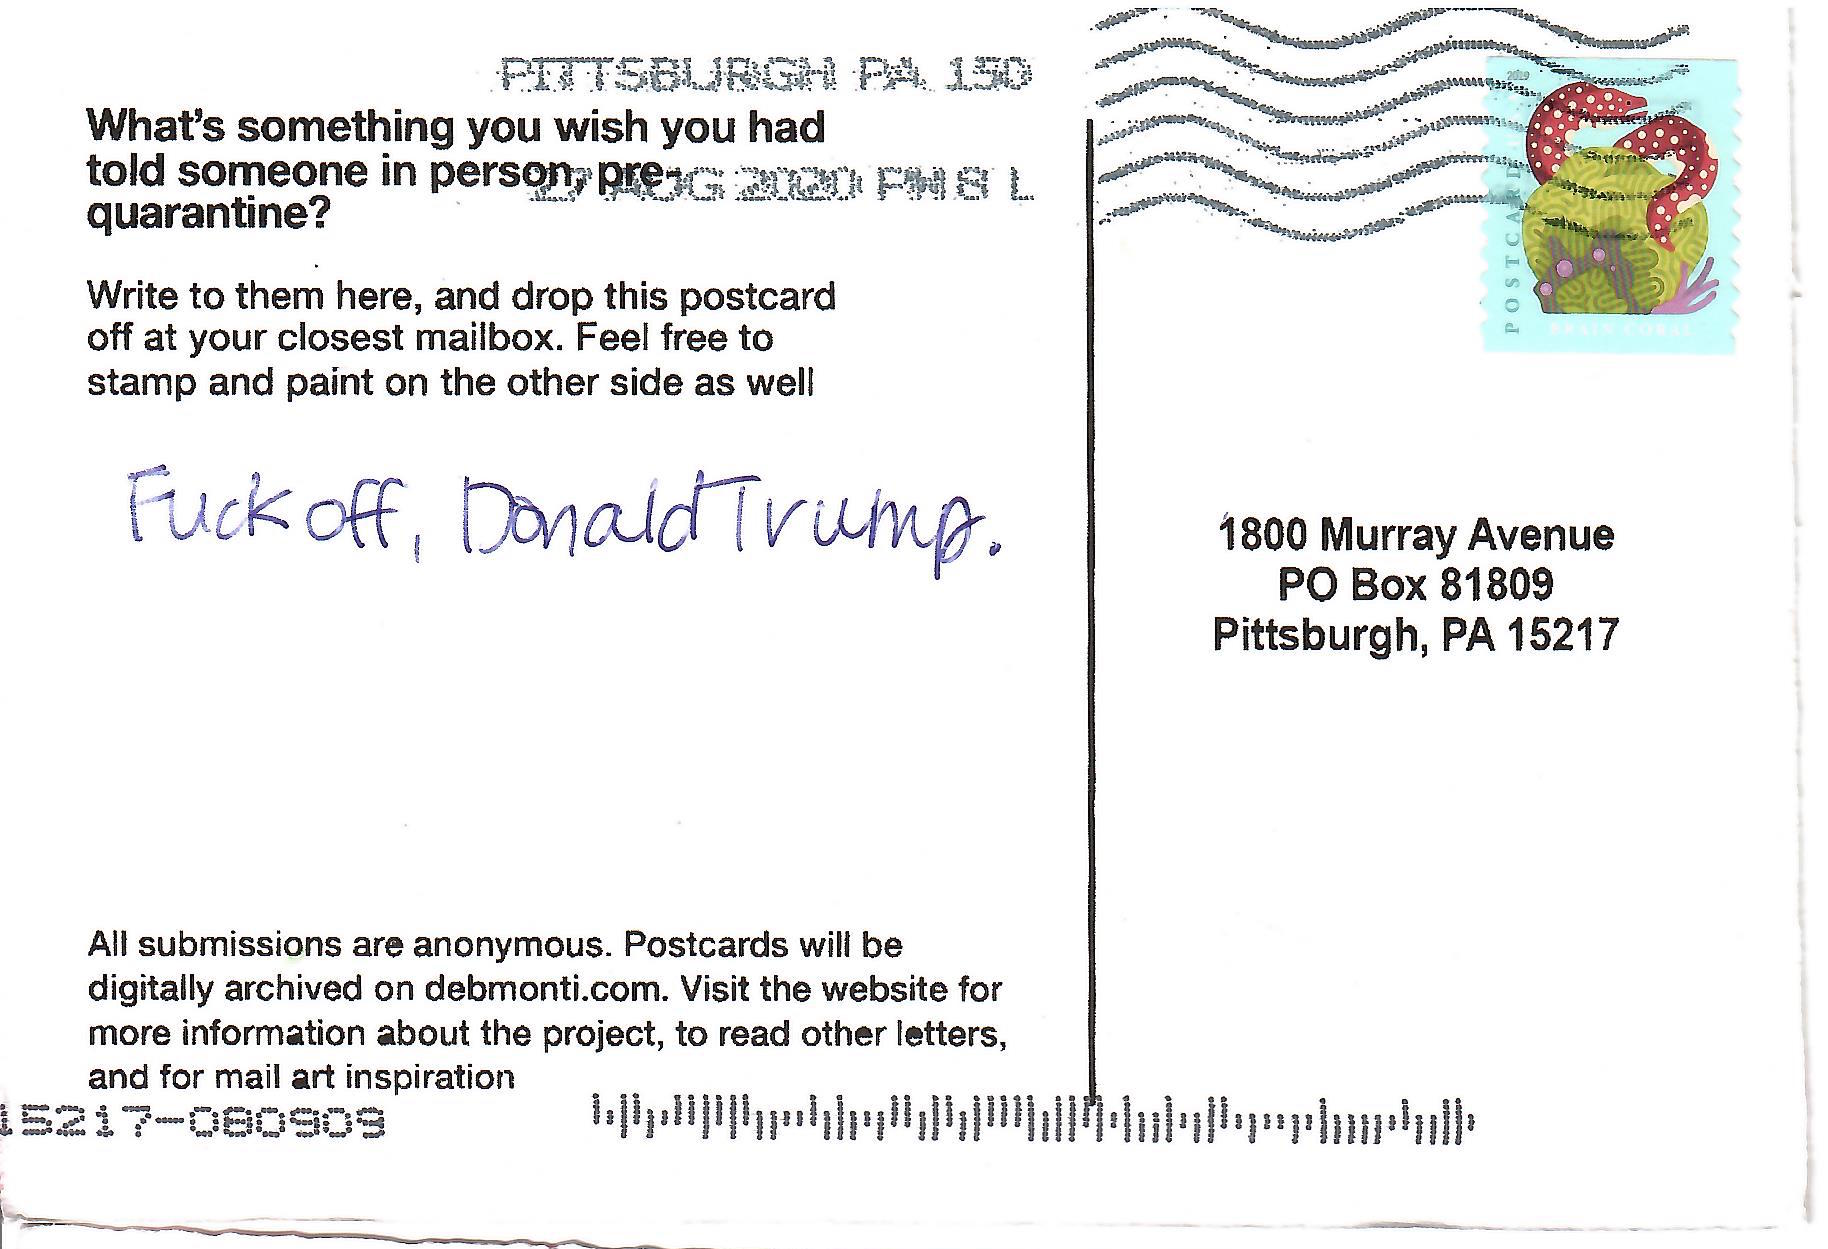 PITTSBURGH PA 150
27 AUG 2020 PM 8 L
What's something you wish you had
told someone in person, pre-
quarantine?
Write to them here, and drop this postcard
off at your closest mailbox. Feel free to
stamp and paint on the other side as well
Fuck off, Donald Trump.
All submissions are anonymous. Postcards will be
digitally archived on debmonti.com. Visit the website for
more information about the project, to read other letters,
and for mail art inspiration
15217-080909
2019
POSTCARD
BRAIN CORAL
1800 Murray Avenue
PO Box 81809
Pittsburgh, PA 15217